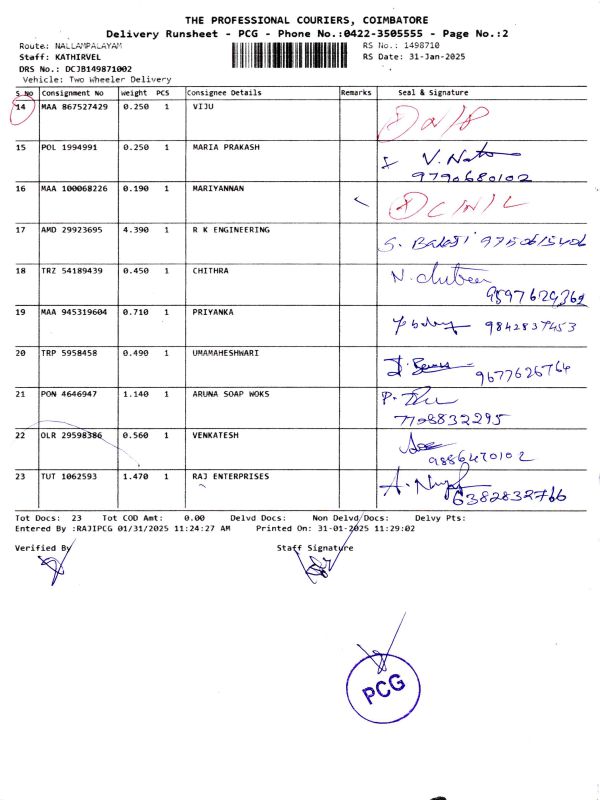 THE PROFESSIONAL COURIERS, COIMBATORE
Delivery Runsheet - PCG - Phone No.:0422-3505555 - Page No.:2
Route: NALLAMPALAYAM RS No.: 1498710
Staff: KATHIRVEL RS Date: 31-Jan-2025
DRS No.: DCJB149871002
Vehicle: Two Wheeler Delivery
S No Consignment No Weight PCS Consignee Details Remarks Seal & Signature
14 MAA 867527429 0.250 1 VIJU
15 POL 1994991 0.250 1 MARIA PRAKASH
9790680102
16 MAA 100068226 0.190 1 MARIYANNAN
17 AMD 29923695 4.390 1 R K ENGINEERING
18 TRZ 54189439 0.450 1 CHITHRA
19 MAA 945319604 0.710 1 PRIYANKA 9842837453
20 TRP 5958458 0.490 1 UMAMAHESHWARI
9677626764
21 PON 4646947 1.140 1 ARUNA SOAP WOKS
7708832295
22 OLR 29598386 0.560 1 VENKATESH
9886470102
23 TUT 1062593 1.470 1 RAJ ENTERPRISES
6382832766
Tot Docs: 23 Tot COD Amt: 0.00 Delvd Docs: Non Delvd Docs: Delvy Pts:
Entered By :RAJIPCG 01/31/2025 11:24:27 AM Printed On: 31-01-2025 11:29:02
Verified By Staff Signature
PCG